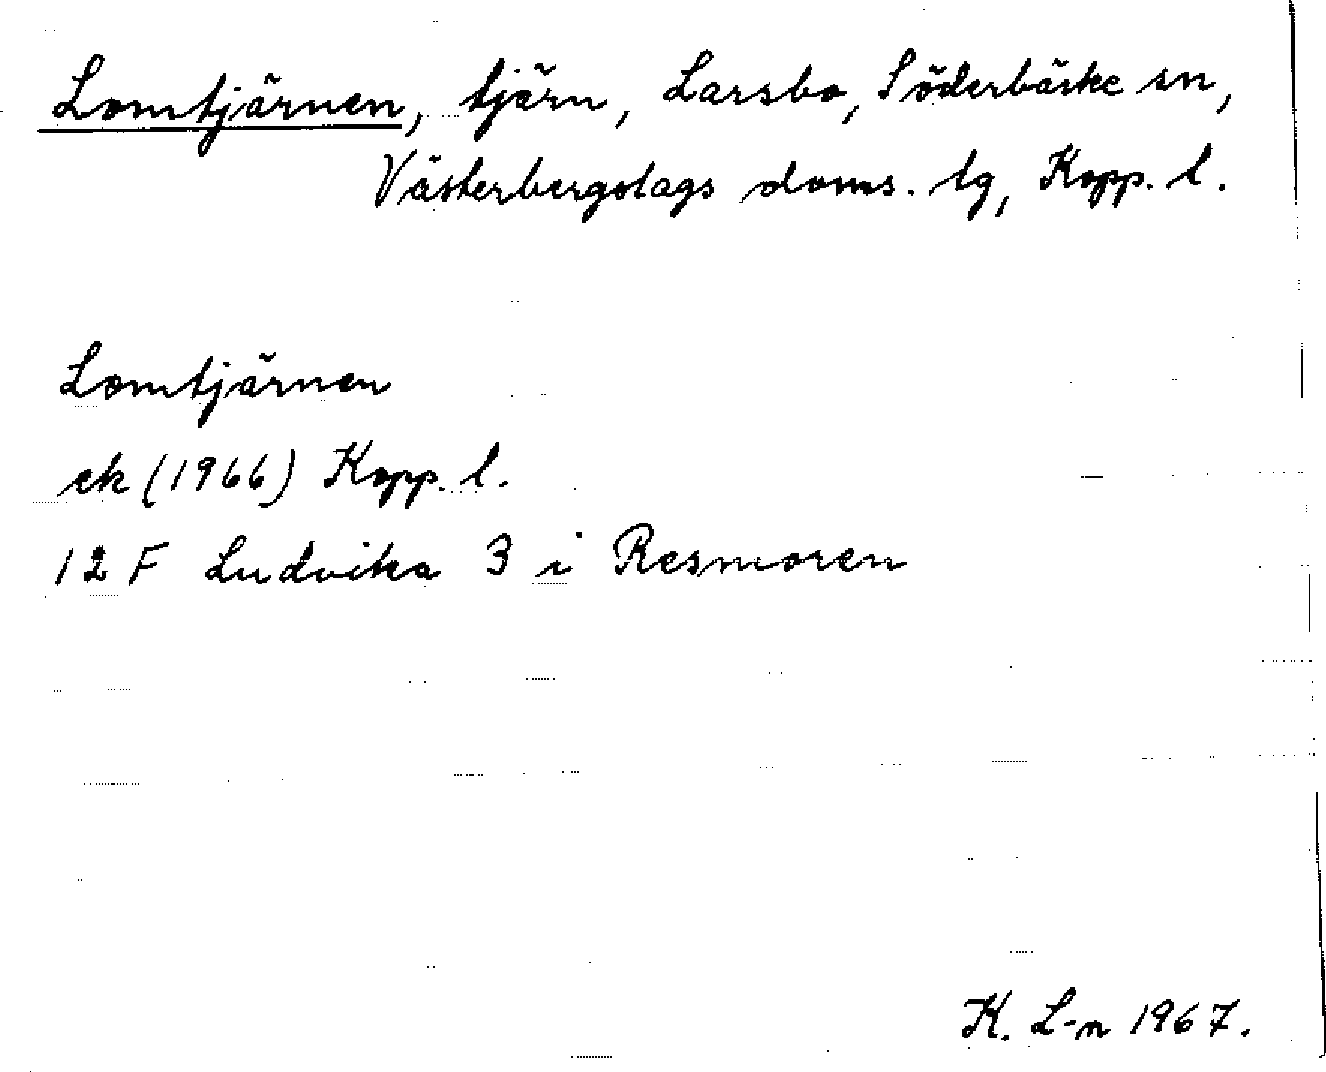 Lomtjärnen, tjärn, Larsbo, Söderbärke sn,
Västerbergslags doms. lg, Kopp. l.
Lomtjärnen
ek (1966) Kopp. l.
12 F Ludvika 3 i Resmoren
K. L-n 1967.